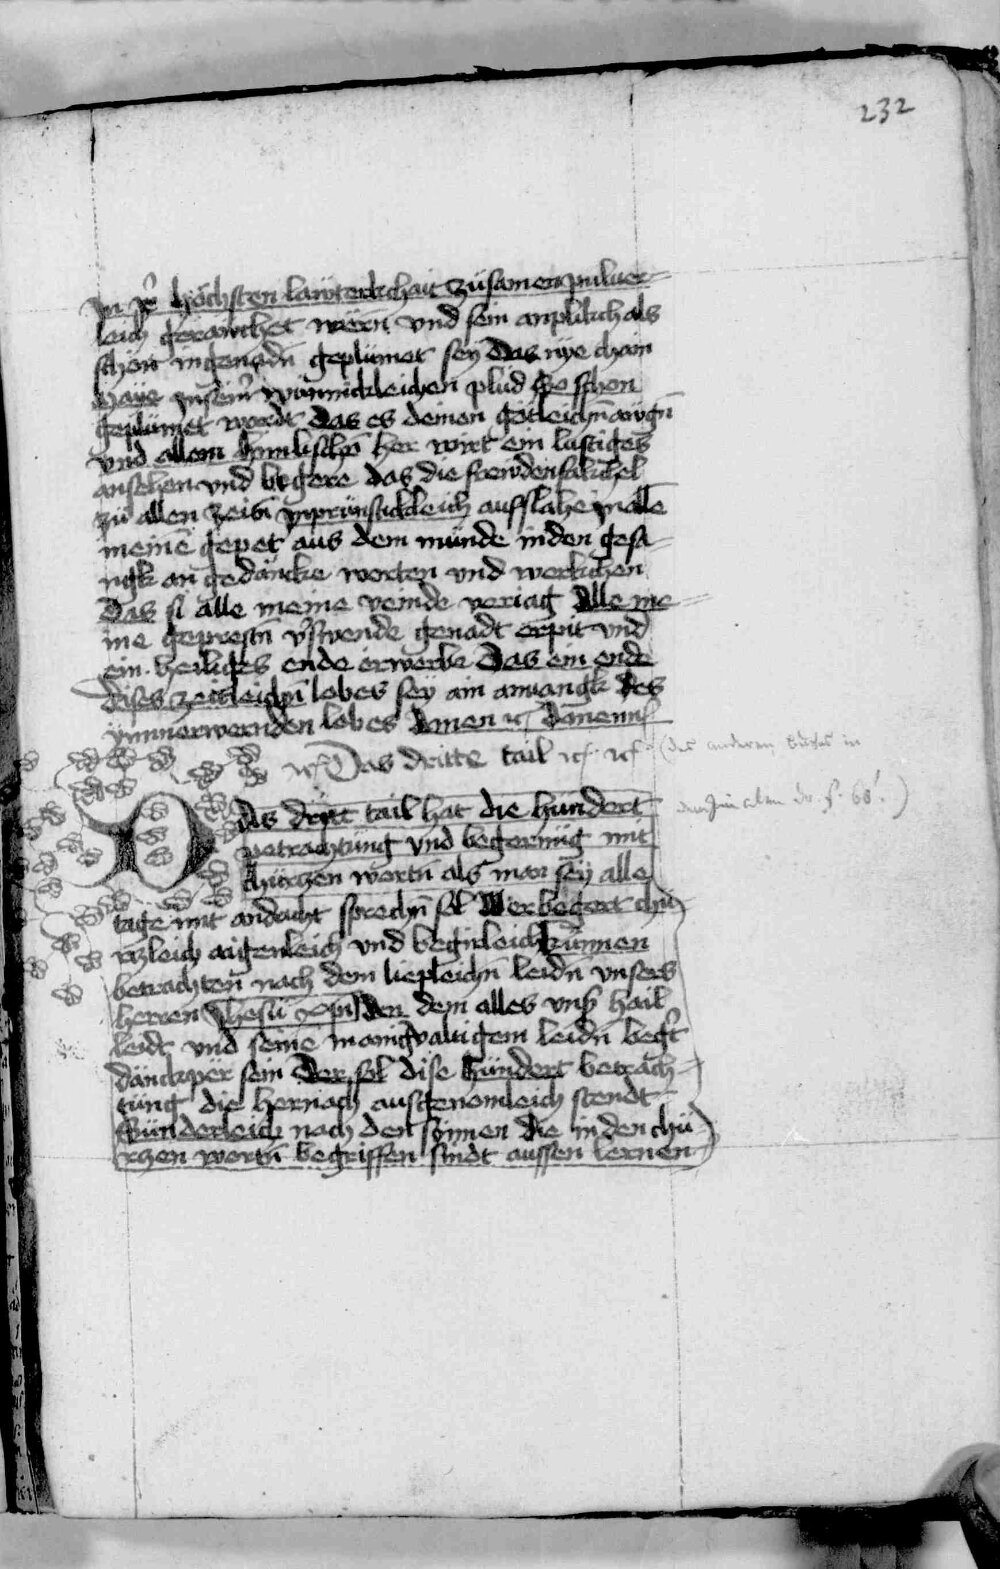 232
In ir höchsten lawterkchait züsamen puluer=
leich gerawchet wern vnd sein anplikch als
schön in genadn geplümet sey Das nye chain
maye in seinr wünnickleichen plud So schon
geplümet wordt Das es deinen götleichn awgn
vnd allem himlischn her wirt ein lustiges
ansehen vnd begere das die frewdenfakchel
zü allen zeitn inprünstickleich aufflahe in allē
meinē gepet aus dem münde in den gesa=
ngk an gedäncke worten vnd werkchen
Das si alle meine veinde veriag Alle me=
ine geprestn vswende genadt erpit vnd
ein heiliges ende erwerbe Das ein ende
dises zeitleichn lobes sey ain anuangk des
ymmerwernden lobes Amen
Das dritte tail (des anderen Buches in
f. 68!)
Das dritt tail hat die hündert
petrachtüng vnd begerüng mit
chürtzen wortn als man sey alle
tage mit andacht sprechn sol Wer begert chü
rtzleich aigenleich vnd begirleich künnen
betrachten nach dem liepleichn leidn vnsers
herren Jhesu xpi Der dem alles vnß hail
leidt vnd seine manigualtigem leidn begert
dänckper sein Der sol dise hündert betrach=
tüng die hernach ausgenomleich stendt
Sünderleich nach den synnen die in den chü
rtzen wortn begriffen sindt aussen lernen